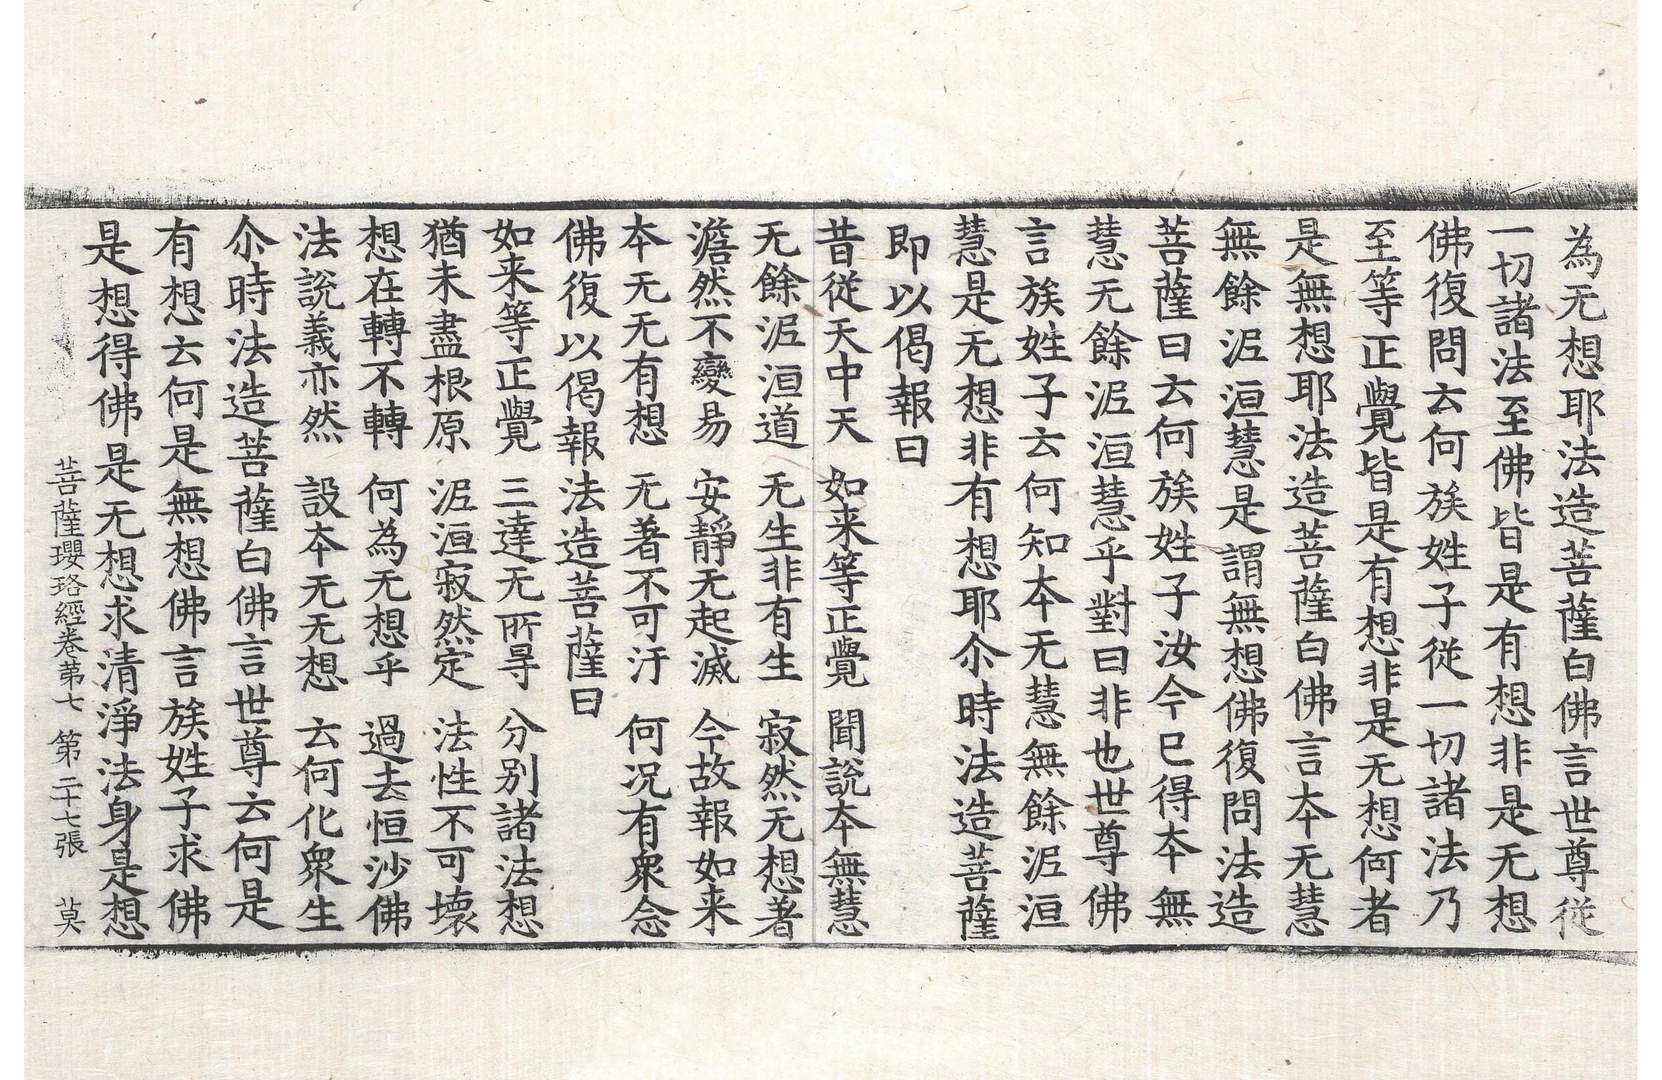 為无想耶法造菩薩白佛言世尊從
一切諸法至佛皆是有想非是无想
佛復問云何族姓子從一切諸法乃
至等正覺皆是有想非是无想何者
是無想耶法造菩薩白佛言本无慧
無餘泥洹慧是謂無想佛復問法造
菩薩曰云何族姓子汝今已得本無
慧无餘泥洹慧乎對曰非也世尊佛
言族姓子云何知本无慧無餘泥洹
慧是无想非有想耶尒時法造菩薩
即以偈報曰
昔從天中天 如来等正覺 聞說本無慧
无餘泥洹道 无生非有生 寂然无想著
澹然不變易 安靜无起滅 今故報如来
本无无有想 无著不可汙 何况有衆念
佛復以偈報法造菩薩曰
如来等正覺 三達无所㝵 分别諸法想
猶未盡根原 泥洹寂然定 法性不可壞
想在轉不轉 何為无想乎 過去恒沙佛
法說義亦然 設本无无想 云何化衆生
尒時法造菩薩白佛言世尊云何是
有想云何是無想佛言族姓子求佛
是想得佛是无想求清淨法身是想
菩薩瓔珞經卷苐七 第二十七張 莫